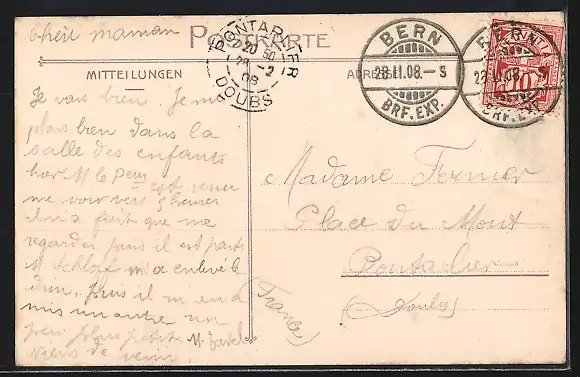 Chère maman
POSTKARTE
MITTEILUNGEN
ADRESSE
PONTARLIER
20 50
28 -2
08
DOUBS
BERN
28.II.08.–S
BRF. EXP.
BERN
28.II.08.–S
BRF. EXP.
10
Je vais bien. Je me
plais bien dans la
salle des enfants
hier M. le
est venu
me voir vers 9 heures
il n'a fait que me
regarder puis il est parti
M. m'a enlevé le
puis il m'en a
mis un autre un
peu plus petit. M.
viens de venir.
Madame Fernier
Place du Mont
Pontarlier
(Doubs)
(France)